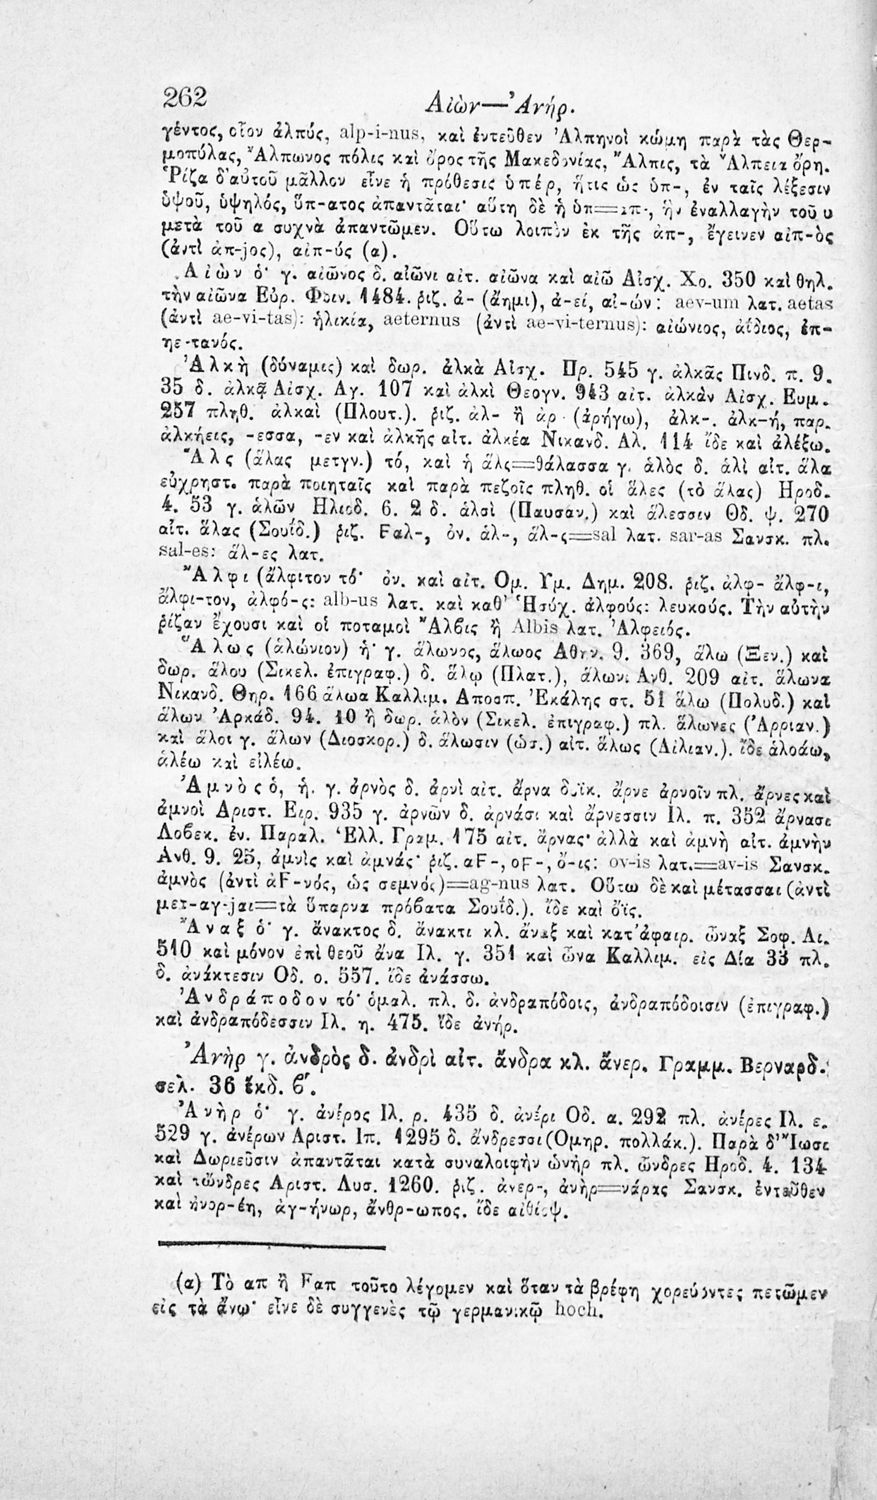 262
Αἰὼν—Ἀνήρ.
γέντος, οἷον ἀλπύς, alp-i-nus, καὶ ἐντεῦθεν Ἀλπηνοὶ κώμη παρὰ τὰς Θερ-
μοπύλας, Ἄλπωνος πόλις καὶ ὄρος τῆς Μακεδονίας, Ἄλπις, τὰ Ἄλπεια ὄρη.
Ῥίζα δ' αὐτοῦ μᾶλλον εἶνε ἡ πρόθεσις ὑπέρ, ἥτις ὡς ὑπ-, ἐν ταῖς λέξεσιν
ὑψοῦ, ὑψηλός, ὕπ-ατος ἀπαντᾶται· αὕτη δὲ ἡ ὑπ=απ-, ἣν ἐναλλαγὴν τοῦ υ
μετὰ τοῦ α συχνὰ ἀπαντῶμεν. Οὕτω λοιπὸν ἐκ τῆς ἀπ-, ἔγεινεν αἰπ-ὸς
(ἀντὶ ἀπ-jος), αἰπ-ύς (α).
Αἰὼν ὁ· γ. αἰῶνος δ. αἰῶνι αἰτ. αἰῶνα καὶ αἰῶ Αἰσχ. Χο. 350 καὶ θηλ.
τὴν αἰῶνα Εὐρ. Φοιν. 1484. ῥιζ. ἀ- (ἄημι), ἀ-εί, αἰ-ών: aev-um λατ. aetas
(ἀντὶ ae-vi-tas): ἡλικία, aeternus (ἀντὶ ae-vi-ternus): αἰώνιος, ἀΐδιος, ἐπ-
ηε-τανός.
Ἀλκὴ (δύναμις) καὶ δωρ. ἀλκὰ Αἰσχ. Πρ. 545 γ. ἀλκᾶς Πινδ. π. 9.
35 δ. ἀλκᾷ Αἰσχ. Αγ. 107 καὶ ἀλκὶ Θεογν. 943 αἰτ. ἀλκὰν Αἰσχ. Ευμ.
257 πληθ. ἀλκαὶ (Πλουτ.). ῥιζ. ἀλ- ἢ ἀρ- (ἀρήγω), ἀλκ-. ἀλκ-ή, παρ.
ἀλκήεις, -εσσα, -εν καὶ ἀλκῆς αἰτ. ἀλκέα Νικανδ. Αλ. 114 ἴδε καὶ ἀλέξω.
Ἅλς (ἅλας μετγν.) τό, καὶ ἡ ἅλς=θάλασσα γ. ἁλὸς δ. ἁλὶ αἰτ. ἅλα
εὔχρηστ. παρὰ ποιηταῖς καὶ παρὰ πεζοῖς πληθ. οἱ ἅλες (τὸ ἅλας) Ηροδ.
4. 53 γ. ἁλῶν Ησιοδ. 6. 2 δ. ἁλσὶ (Παυσαν.) καὶ ἅλεσσιν Οδ. ψ. 270
αἰτ. ἅλας (Σουΐδ.) ῥιζ. Fαλ-, ὀν. ἁλ-, ἅλ-ς=sal λατ. sar-as Σανσκ. πλ.
sal-es: ἅλ-ες λατ.
Ἄλφι (ἄλφιτον τό· ὀν. καὶ αἰτ. Ομ. Υμ. Δημ. 208. ῥιζ. ἀλφ- ἄλφ-ι,
ἄλφι-τον, ἀλφό-ς: alb-us λατ. καὶ καθ' Ἡσύχ. ἀλφούς: λευκούς. Τὴν αὐτὴν
ῥίζαν ἔχουσι καὶ οἱ ποταμοὶ Ἄλβις ἢ Albis λατ. Ἀλφειός.
Ἅλως (ἁλώνιον) ἡ· γ. ἅλωνος, ἅλωος Αθην. 9. 369, ἅλω (Ξεν.) καὶ
δωρ. ἅλου (Σικελ. ἐπιγραφ.) δ. ἅλῳ (Πλατ.), ἅλωνι Ανθ. 209 αἰτ. ἅλωνα
Νικανδ. Θηρ. 166 ἅλωα Καλλιμ. Αποσπ. Ἑκάλης στ. 51 ἅλω (Πολυδ.) καὶ
ἅλων Ἀρκάδ. 94. 10 ἢ δωρ. ἁλὸν (Σικελ. ἐπιγραφ.) πλ. ἅλωνες (Ἀρριαν.)
καὶ ἅλοι γ. ἅλων (Διοσκορ.) δ. ἅλωσιν (ὡσ.) αἰτ. ἅλως (Αἰλιαν.). ἴδε ἀλοάω,
ἀλέω καὶ εἰλέω.
Ἀμνὸς ὁ, ἡ. γ. ἀρνὸς δ. ἀρνὶ αἰτ. ἄρνα δυϊκ. ἄρνε ἀρνοῖν πλ. ἄρνες καὶ
ἀμνοὶ Αριστ. Ειρ. 935 γ. ἀρνῶν δ. ἀρνάσι καὶ ἄρνεσσιν Ιλ. π. 352 ἄρνασι
Λοβεκ. ἐν. Παραλ. Ἑλλ. Γραμ. 175 αἰτ. ἄρνας· ἀλλὰ καὶ ἀμνὴ αἰτ. ἀμνὴν
Ανθ. 9. 25, ἀμνὶς καὶ ἀμνάς· ῥιζ. αF-, οF-, ὄ-ις: ov-is λατ.=av-is Σανσκ.
ἀμνὸς (ἀντὶ ἀF-νός, ὡς σεμνός)=ag-nus λατ. Οὕτω δὲ καὶ μέτασσαι (ἀντὶ
μετ-αγ-jαι=τὰ ὕπαρνα πρόβατα Σουΐδ.). ἴδε καὶ ὄϊς.
Ἄναξ ὁ· γ. ἄνακτος δ. ἄνακτι κλ. ἄναξ καὶ κατ' ἀφαιρ. ὦναξ Σοφ. Αι.
510 καὶ μόνον ἐπὶ θεοῦ ἄνα Ιλ. γ. 351 καὶ ὦνα Καλλιμ. εἰς Δία 33 πλ.
δ. ἀνάκτεσιν Οδ. ο. 557. ἴδε ἀνάσσω.
Ἀνδράποδον τό· ὁμαλ. πλ. δ. ἀνδραπόδοις, ἀνδραπόδοισιν (ἐπιγραφ.)
καὶ ἀνδραπόδεσσιν Ιλ. η. 475. ἴδε ἀνήρ.
Ἀνὴρ γ. ἀνδρὸς δ. ἀνδρὶ αἰτ. ἄνδρα κλ. ἄνερ. Γραμμ. Βερναρδ.
σελ. 36 ἔκδ. 6'.
Ἀνὴρ ὁ· γ. ἀνέρος Ιλ. ρ. 435 δ. ἀνέρι Οδ. α. 292 πλ. ἀνέρες Ιλ. ε.
529 γ. ἀνέρων Αριστ. Ιπ. 1295 δ. ἄνδρεσσι (Ομηρ. πολλάκ.). Παρὰ δ' Ἴωσι
καὶ Δωριεῦσιν ἀπαντᾶται κατὰ συναλοιφὴν ὡνὴρ πλ. ὧνδρες Ηροδ. 4. 134
καὶ ὤνδρες Αριστ. Λυσ. 1260. ῥιζ. ἀνερ-, ἀνὴρ=νάρας Σανσκ. ἐντεῦθεν
καὶ ἠνορ-έη, ἀγ-ήνωρ, ἄνθρ-ωπος. ἴδε αἰθίοψ.
(α) Τὸ απ ἢ Fαπ τοῦτο λέγομεν καὶ ὅταν τὰ βρέφη χορεύοντες πετῶμεν
εἰς τὰ ἄνω· εἶνε δὲ συγγενὲς τῷ γερμανικῷ hoch.